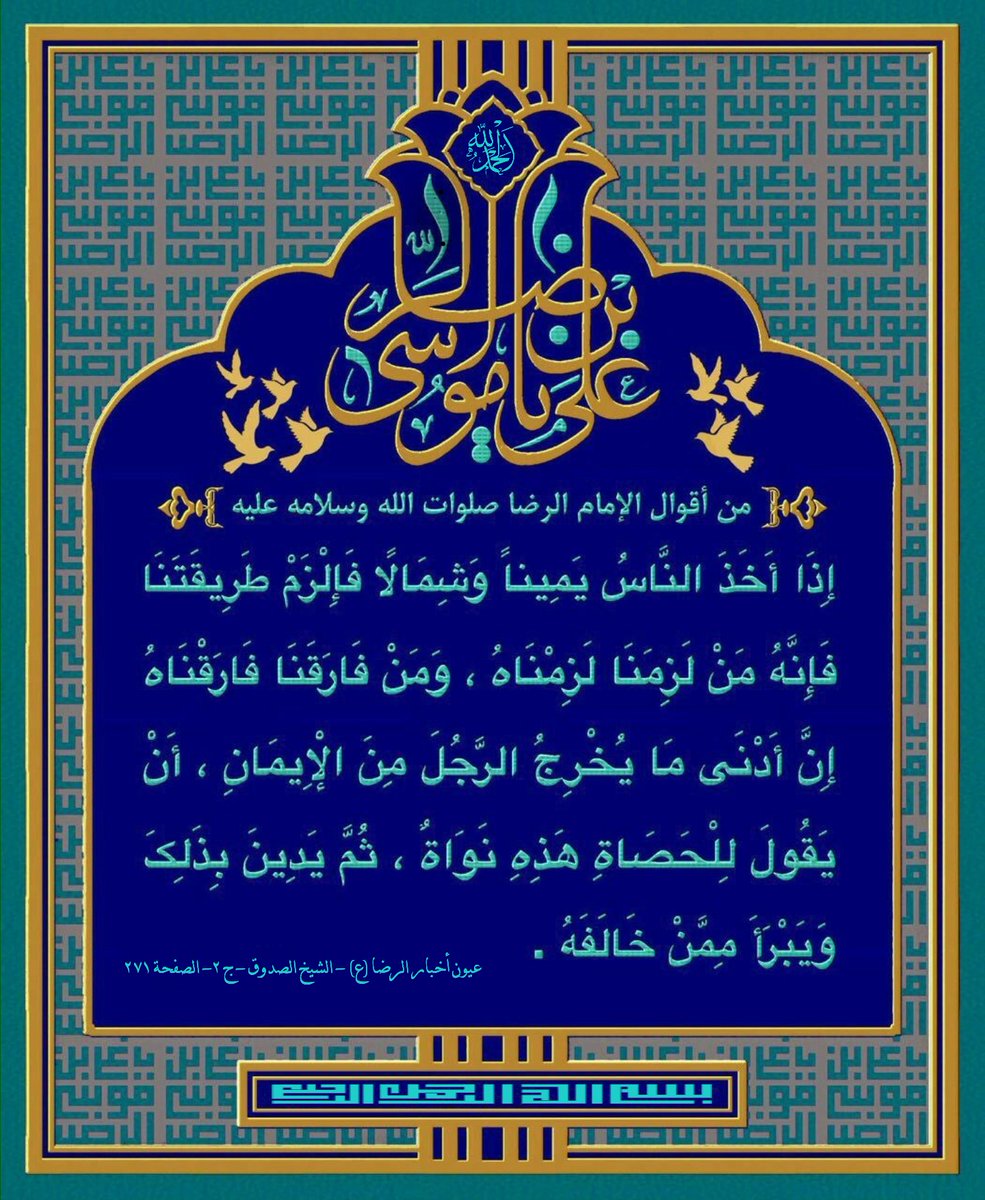 الحمد لله
يا علي بن موسى الرضا
من أقوال الإمام الرضا صلوات الله وسلامه عليه
إِذَا أَخَذَ النَّاسُ يَمِيناً وَشِمَالًا فَإِلْزَمْ طَرِيقَتَنَا
فَإِنَّهُ مَنْ لَزِمَنَا لَزِمْنَاهُ ، وَمَنْ فَارَقَنَا فَارَقْنَاهُ
إِنَّ أَدْنَى مَا يُخْرِجُ الرَّجُلَ مِنَ الْإِيمَانِ ، أَنْ
يَقُولَ لِلْحَصَاةِ هَذِهِ نَوَاةٌ ، ثُمَّ يَدِينَ بِذَلِکَ
وَيَبْرَأَ مِمَّنْ خَالَفَهُ .
عيون أخبار الرضا (ع) - الشيخ الصدوق - ج ٢ - الصفحة ٢٧١
بسم الله الرحمن الرحيم